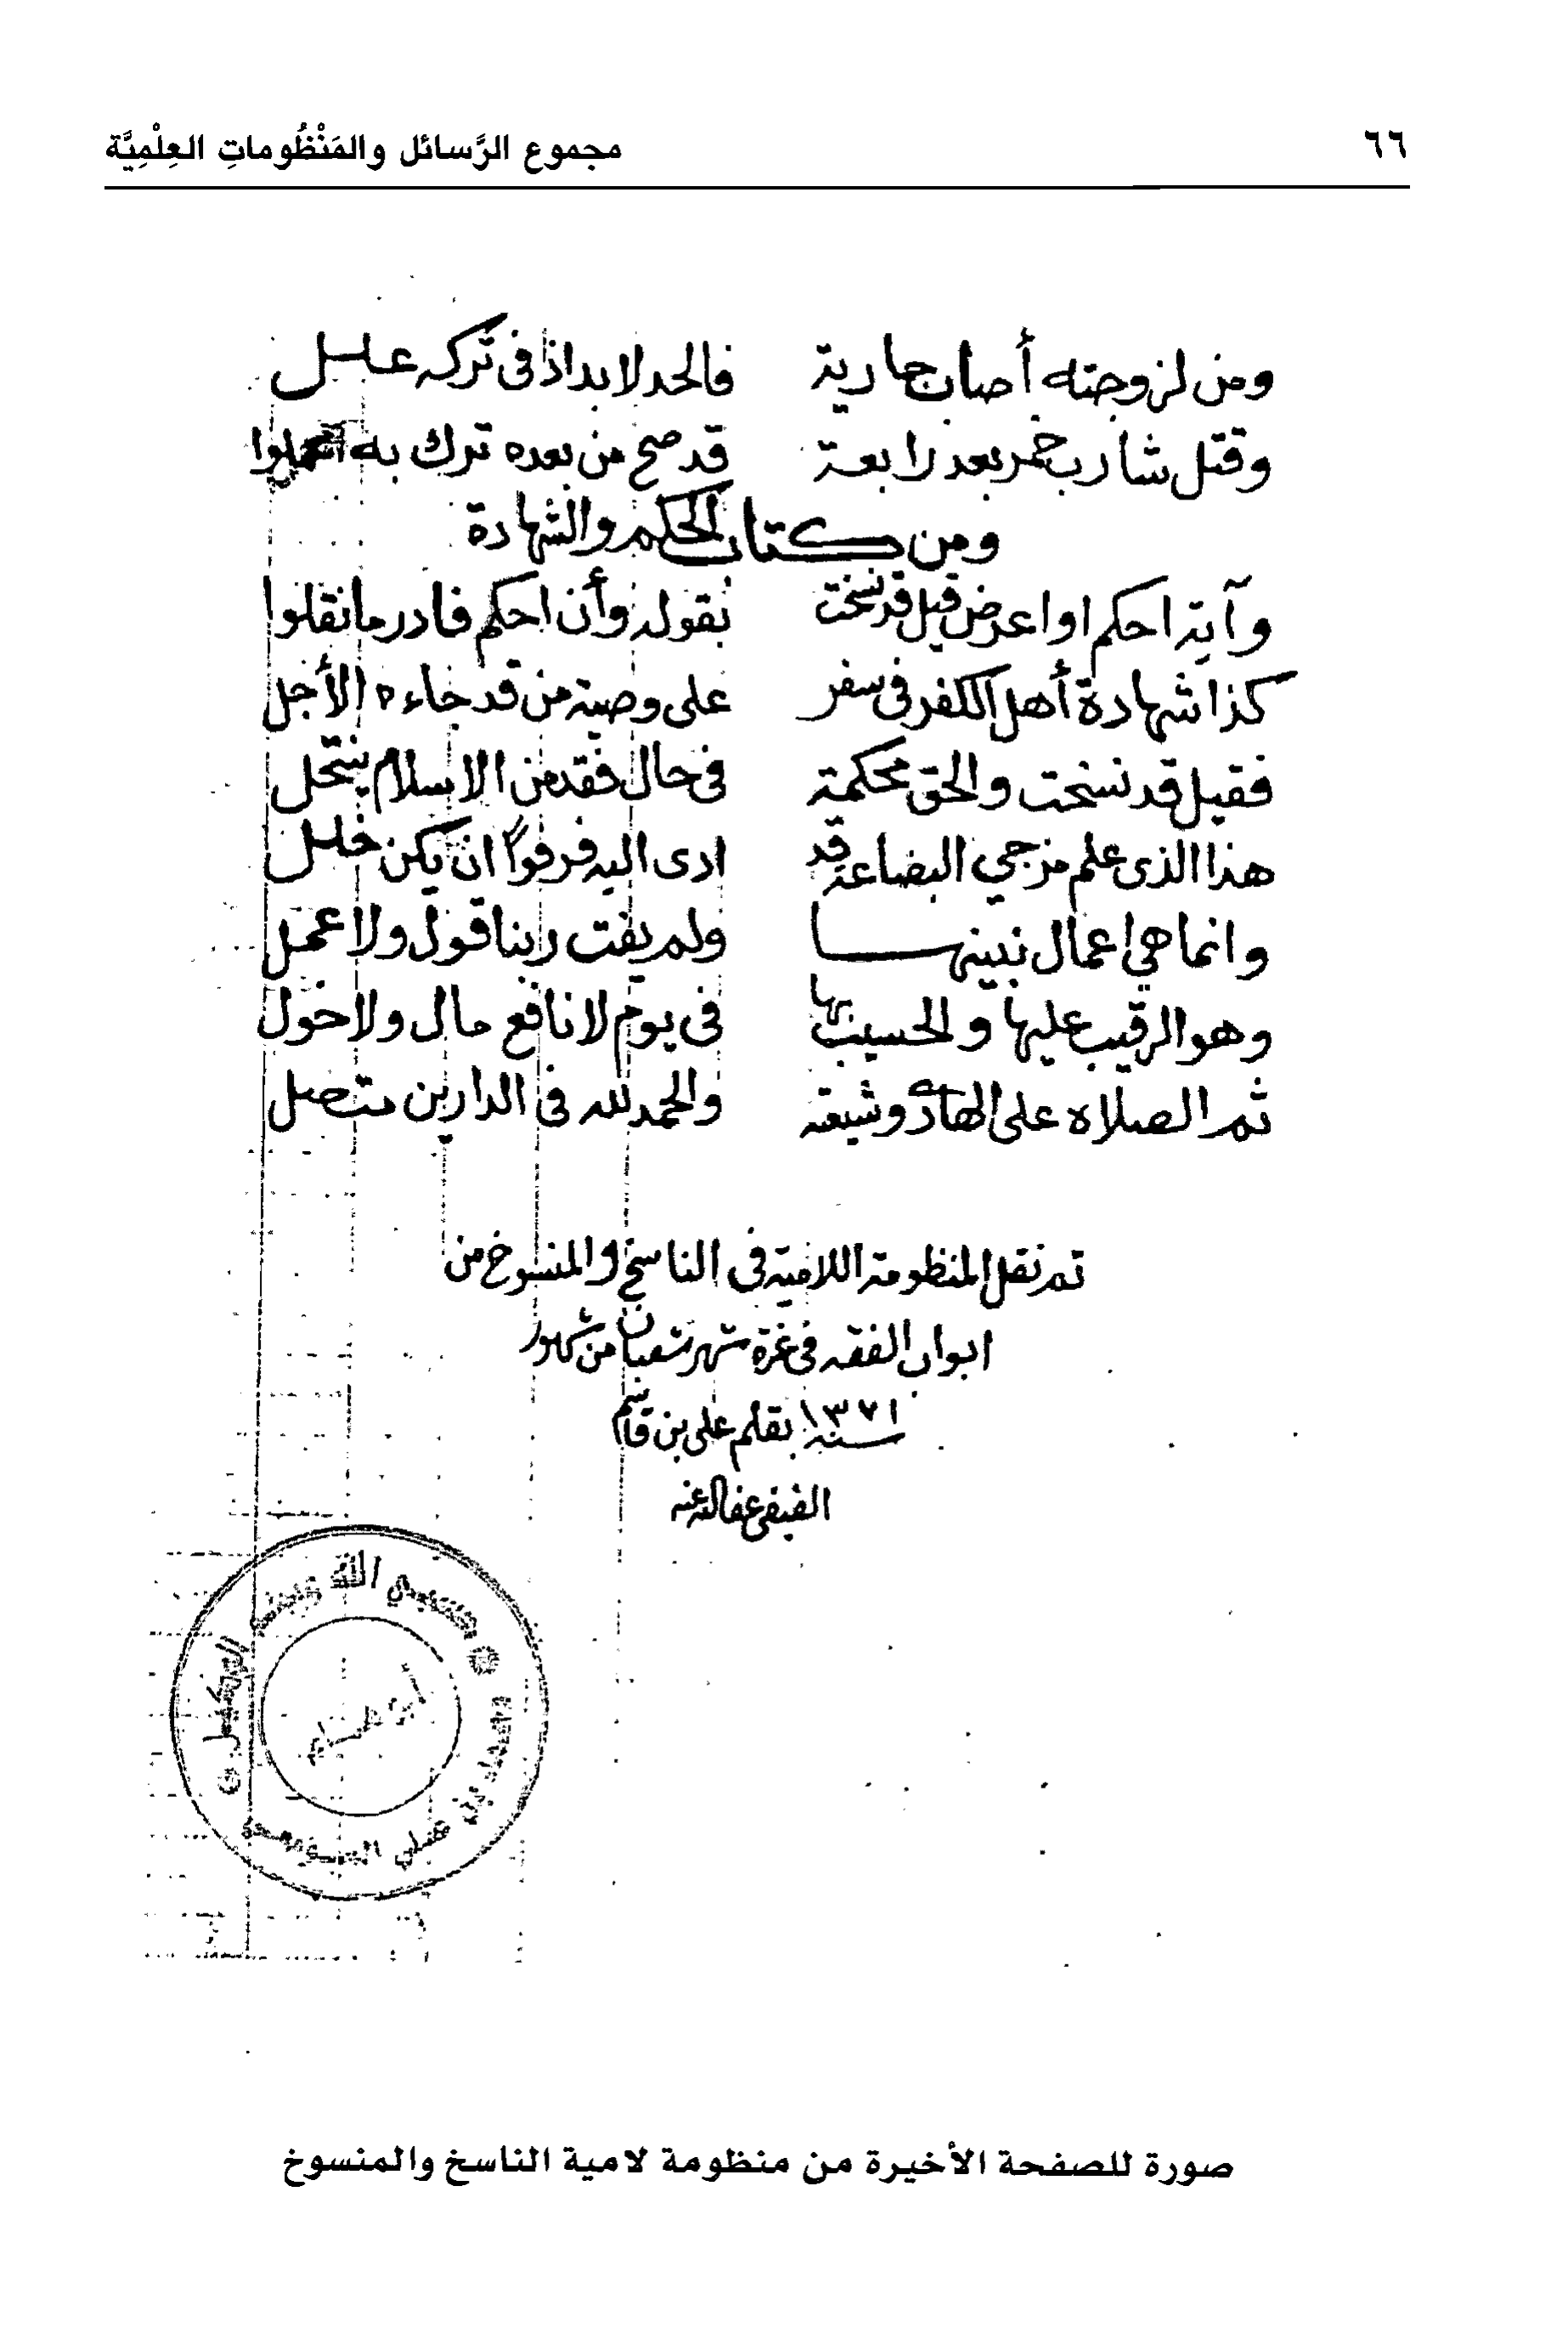 ٦٦ مجموع الرَّسائل والمَنْظُوماتِ العِلْمِيَّة
ومن لزوجته أصاب جارية فالحد لا بد اذ فى تركه علل
وقتل شارب خمر بعد رابعة قد صح من بعده ترك به
ومن كتاب الحكم والشهادة
وآية احكم او اعرض قيل قد نسخت بقوله وأن احكم فادر ما نقلوا
كذا شهادة أهل الكفر فى سفر على وصية من قد جاءه الأجل
فقيل قد نسخت والحق محكمة فى حال فقد من الاسلام ينتحل
هذا الذى علم مزجي البضاعة قد ادى اليه فرفوًا ان يكن خلل
وانما هي اعمال نبينها ولم يفت ربنا قول ولا عمل
وهو الرقيب عليها والحسيب بها فى يوم لا نافع مال ولا خول
ثم الصلاه على الهادي وشيعته والحمد لله فى الدارين متصل
تم نقل المنظومة اللامية فى الناسخ والمنسوخ من
ابواب الفقه فى غرة شهر شعبان من شهور
سنة ١٣٧١ بقلم على بن قاسم
الفيفى عفا الله عنه
حسبي الله ونعم الوكيل
صورة للصفحة الأخيرة من منظومة لامية الناسخ والمنسوخ